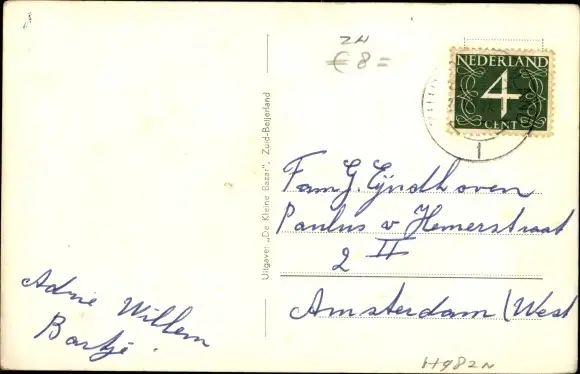 ZN
€ 8 =
NEDERLAND
4
CENT
1
Uitgave: „De Kleine Bazar", Zuid-Beijerland
Fam. G. Eijndhoven
Paulus v Hemerstraat
2 II
Amsterdam (West
Adrie Willem
Bartje.
H982N